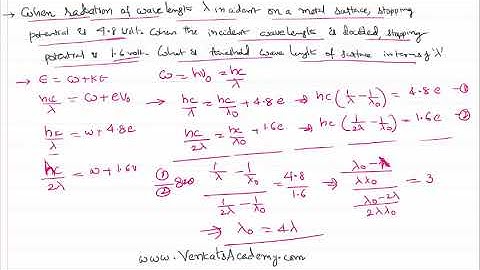 → When radiation of wavelength λ incident on a metal surface, stopping
potential is 4.8 volt. When the incident wavelength is doubled, stopping
potential is 1.6 volt. What is threshold wave length of surface interms of λ
→ E = ω + KE    ω = hν₀ = hc/λ₀
hc/λ = ω + eV₀ → hc/λ = hc/λ₀ + 4.8e ⇒ hc(1/λ − 1/λ₀) = 4.8e —①
hc/λ = ω + 4.8e    hc/2λ = hc/λ₀ + 1.6e ⇒ hc(1/2λ − 1/λ₀) = 1.6e —②
hc/2λ = ω + 1.6v    ①/② (1/λ − 1/λ₀)/(1/2λ − 1/λ₀) = 4.8/1.6 ⇒ ((λ₀ − λ)/λλ₀)/((λ₀ − 2λ)/2λλ₀) = 3
⇒ λ₀ = 4λ
www.VenkatsAcademy.com